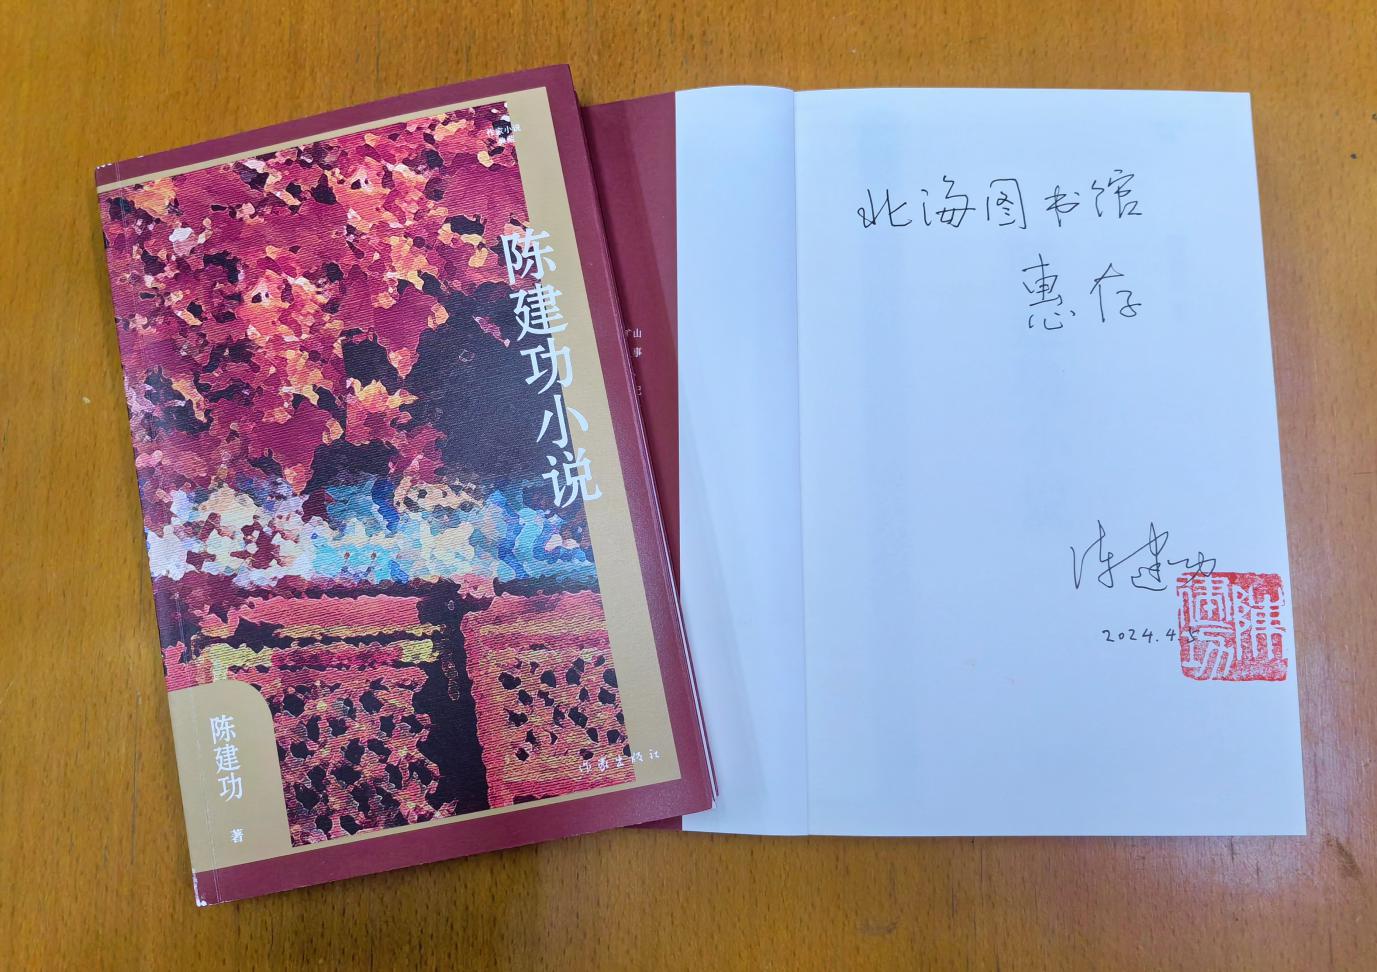 作家小说
典藏
陈建功小说
陈建功
著
作家出版社
北海图书馆
惠存
陈建功
2024.4.5
陈建功